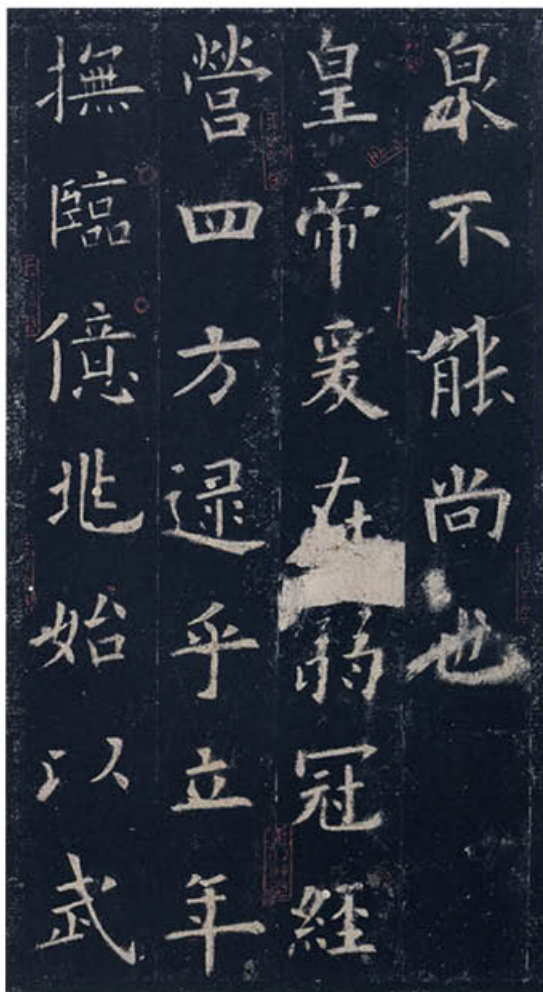 泉不能尚也
皇帝爰在弱冠經
營四方逯乎立年
撫臨億兆始以武